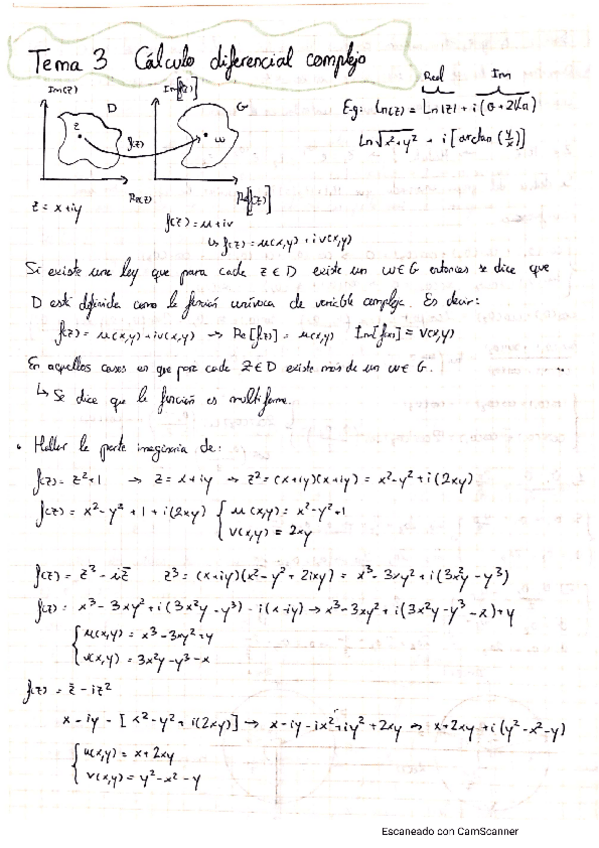 Tema 3 Cálculo diferencial complejo
Im(z) Im[f(z)] Real Im
D G E.g: Ln(z) = Ln|z| + i(θ+2kπ)
z f(z) w Ln√x²+y² + i[arctan(y/x)]
Re(z) Re[f(z)]
z = x+iy f(z) = u+iv
↳ f(z) = u(x,y) + iv(x,y)
Si existe una ley que para cada z∈D existe un w∈G entonces se dice que
D está definida como la función unívoca de variable compleja. Es decir:
f(z) = u(x,y)+iv(x,y) → Re[f(z)] = u(x,y) Im[f(z)] = v(x,y)
En aquellos casos en que para cada z∈D existe más de un w∈G.
↳ Se dice que la función es multiforme.
• Hallar la parte imaginaria de:
f(z) = z²+1 → z = x+iy → z² = (x+iy)(x+iy) = x²-y²+i(2xy)
f(z) = x²-y²+1+i(2xy) { u(x,y) = x²-y²+1
v(x,y) = 2xy
f(z) = z³-iz̄ z³ = (x+iy)(x²-y²+2ixy) = x³-3xy²+i(3x²y-y³)
f(z) = x³-3xy²+i(3x²y-y³)-i(x-iy) → x³-3xy²+i(3x²y-y³-x)+y
{ u(x,y) = x³-3xy²+y
v(x,y) = 3x²y-y³-x
f(z) = z̄-iz²
x-iy-[x²-y²+i(2xy)] → x-iy-ix²+iy²+2xy → x+2xy+i(y²-x²-y)
{ u(x,y) = x+2xy
v(x,y) = y²-x²-y
Escaneado con CamScanner